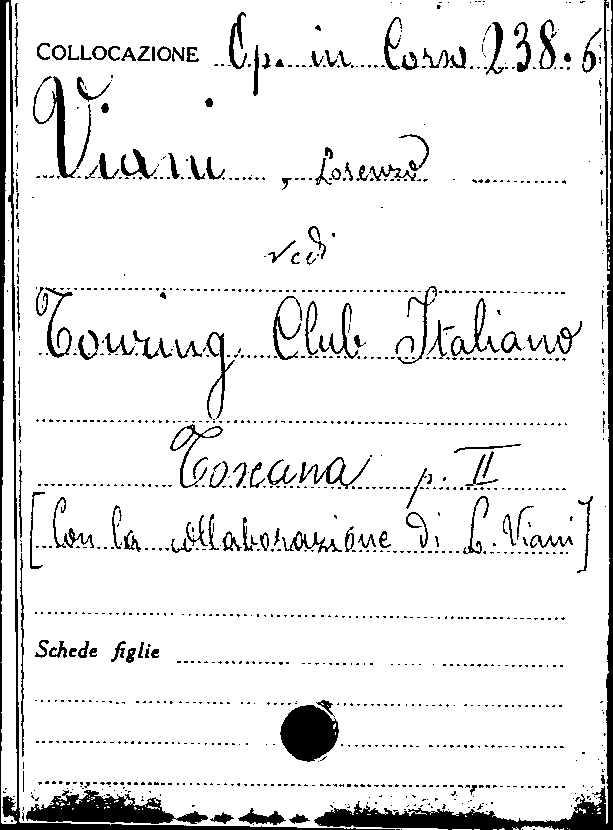 COLLOCAZIONE Op. in Corso 238.6
Viani, Lorenzo
vedi
Touring Club Italiano
Toscana p. II
[Con la collaborazione di L. Viani]
Schede figlie